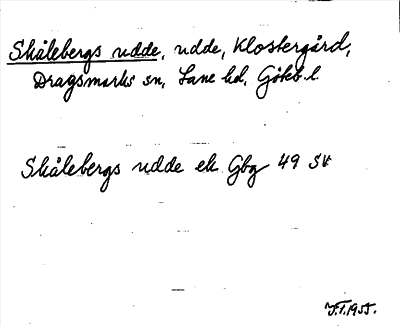 Skålebergs udde, udde, Klostergård,
Dragsmarks sn, Lane hd, Göteb. l.
Skålebergs udde ek Gbg 49 SV
J.I. 1955.